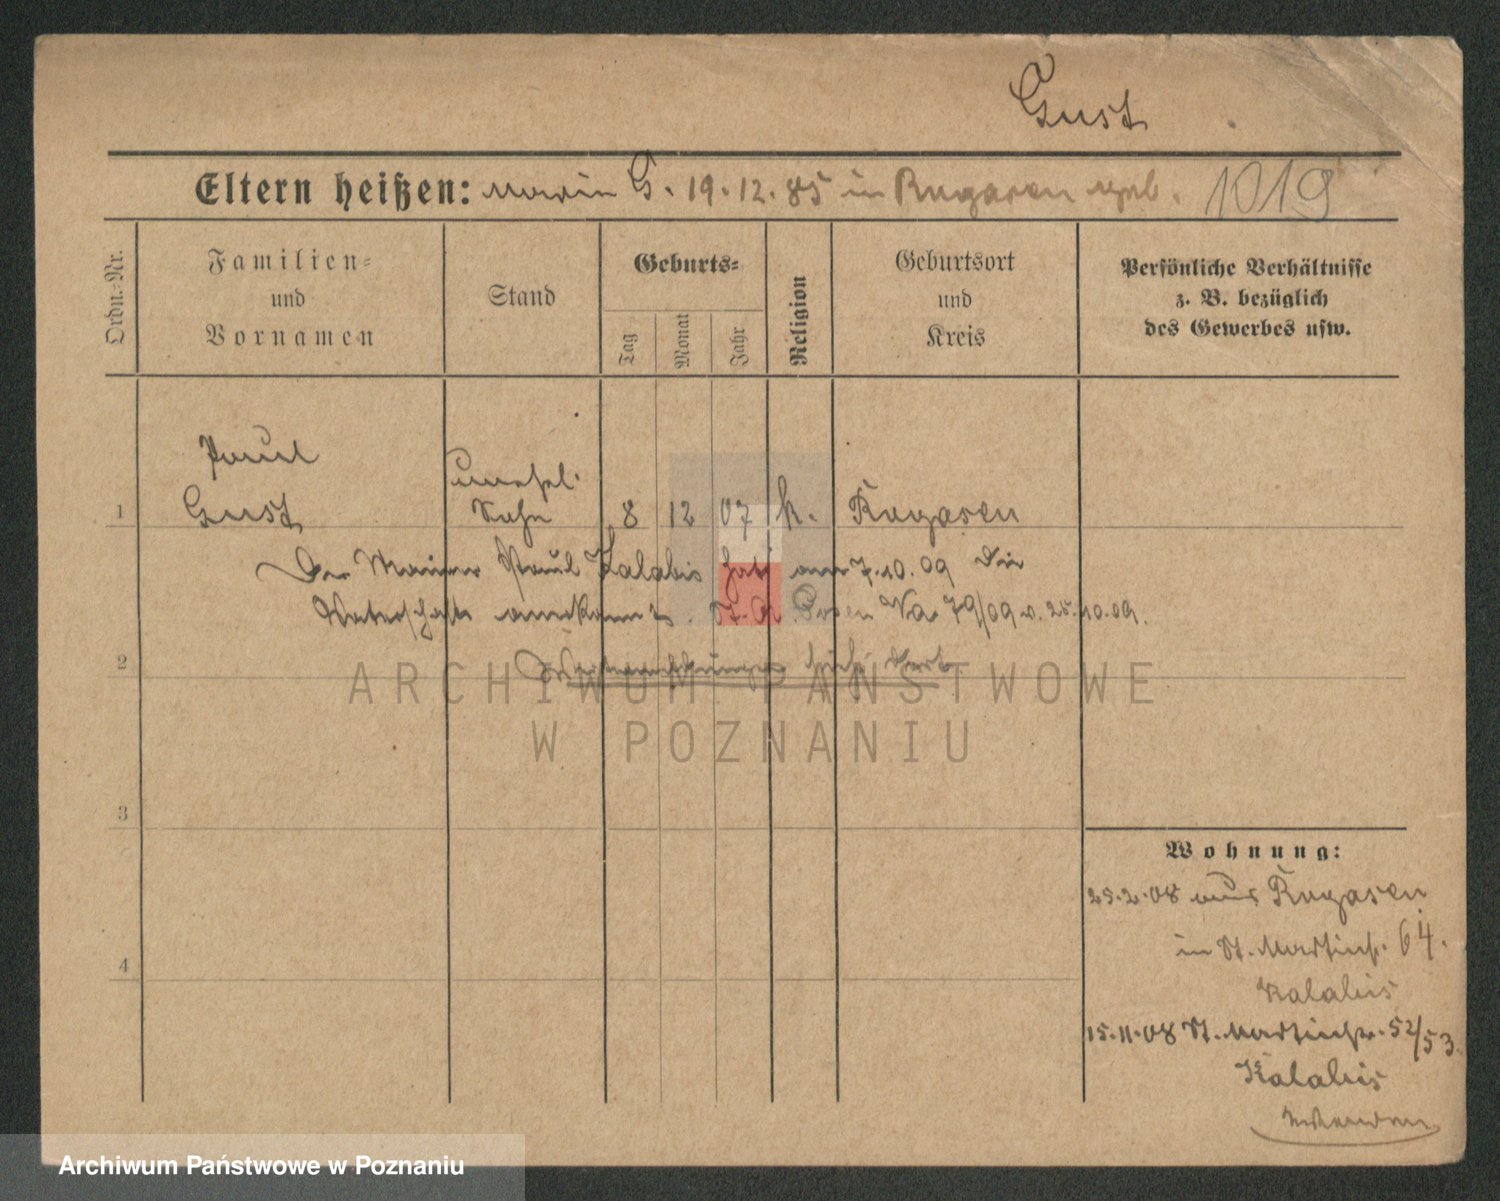 Gust
Eltern heißen: Maria G. 19.12.85 in Rogasen geb. 1019
Ordn.-Nr.
Familien-
und
Vornamen
Stand
Geburts-
Tag
Monat
Jahr
Religion
Geburtsort
und
Kreis
Persönliche Verhältnisse
z. B. bezüglich
des Gewerbes usw.
Paul
unehel.
1 Gust Sohn 8 12 07 k. Rogasen
Der Maurer Paul Kalabis hat am 7.10.09 die
Vaterschaft anerkannt. St. A. Posen Va 79/09 v. 25.10.09.
2
3
4
Wohnung:
25.2.08 aus Rogasen
in St. Martinstr. 64.
Kalabis
15.11.08 St. Martinstr. 52/53.
Kalabis
ARCHIWUM PAŃSTWOWE
W POZNANIU
Archiwum Państwowe w Poznaniu